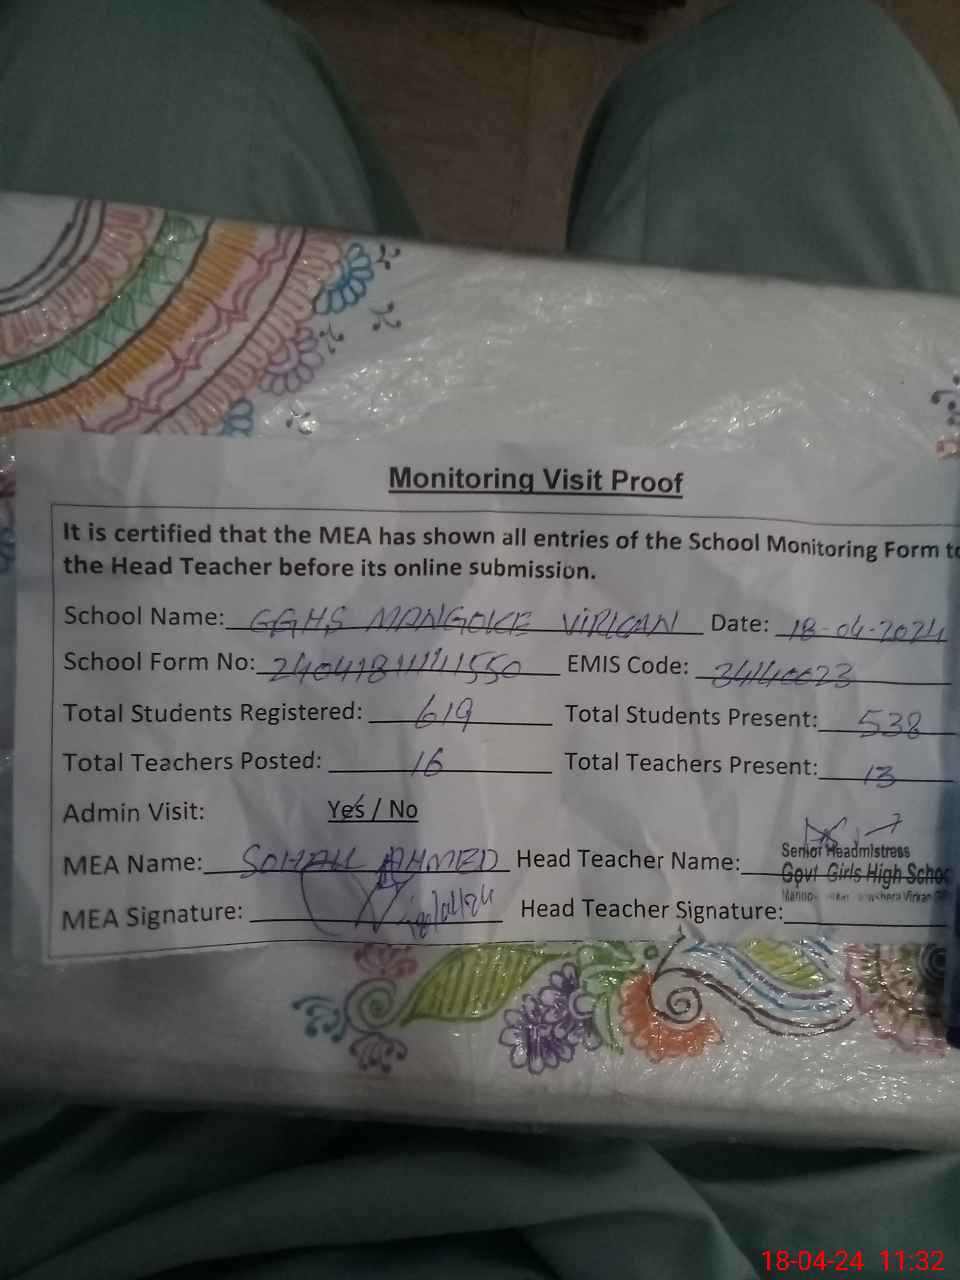 Monitoring Visit Proof
It is certified that the MEA has shown all entries of the School Monitoring Form to
the Head Teacher before its online submission.
School Name: GGHS MANGOKE VIRKAN Date: 18-04-2024
School Form No: 2404181141550 EMIS Code: 34140023
Total Students Registered: 619 Total Students Present: 538
Total Teachers Posted: 16 Total Teachers Present: 13
Admin Visit: Yes / No
MEA Name: SOHAIL AHMED Head Teacher Name:
Senior Headmistress
Govt Girls High School
Virkan
MEA Signature: Head Teacher Signature:
18-04-24 11:32